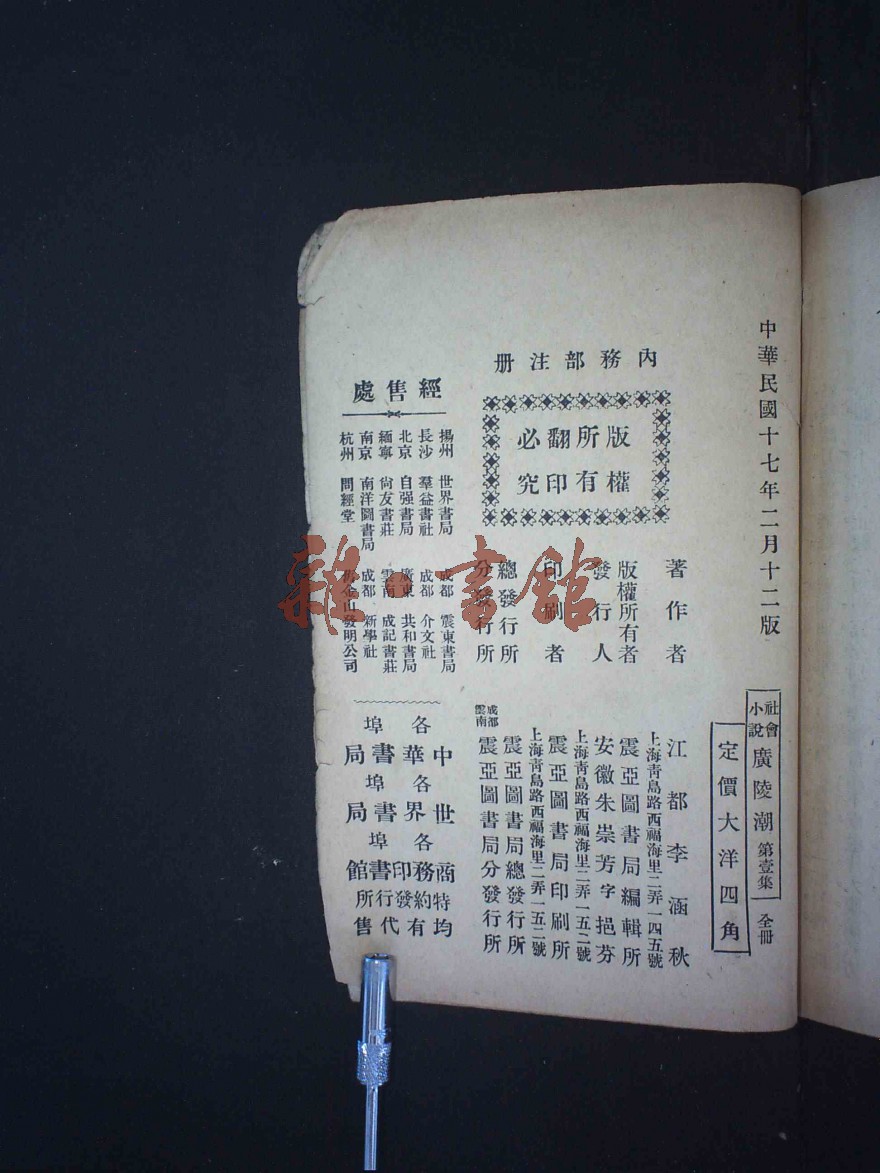 中華民國十七年二月十二版
社會小說 廣陵潮 第壹集 全冊
定價大洋四角
內務部注册
版權所有
翻印必究
著作者 江都李涵秋
版權所有者 上海靑島路西福海里二弄一四五號 震亞圖書局編輯所
發行人 安徽朱崇芳字挹芬
印刷者 上海靑島路西福海里二弄一五二號 震亞圖書局印刷所
總發行所 上海靑島路西福海里二弄一五二號 震亞圖書局總發行所
分發行所 成都 雲南 震亞圖書局分發行所
經售處
揚州 世界書局 成都 震東書局
長沙 羣益書社 成都 介文社
北京 自强書局 廣東 共和書局
緬寧 尙友書莊 雲南 成記書莊
南京 南洋圖書局 成都 新學社
杭州 問經堂 金山發明公司
各埠中華書局
各埠世界書局
各埠商務印書館
特約發行所
均有代售
雜·書館